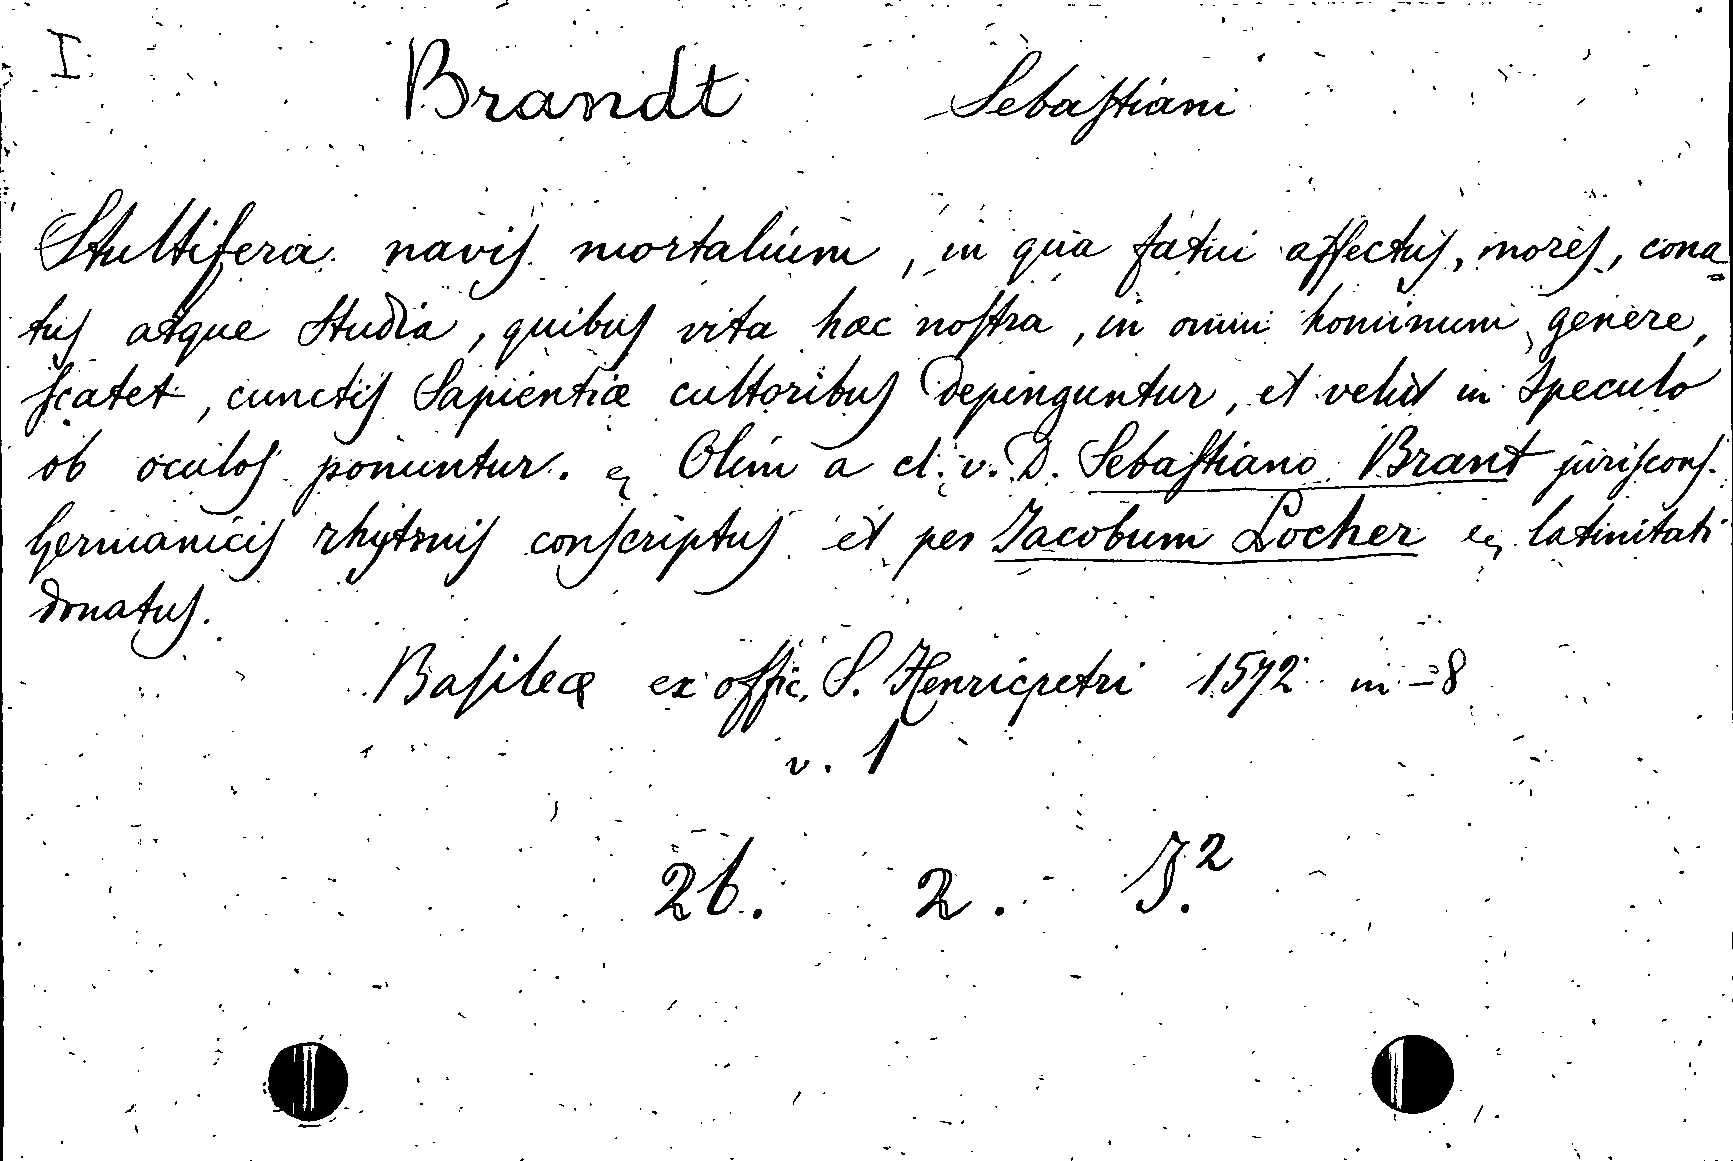 I.
Brandt Sebaſtiani
Stultifera naviſ mortalium, in qua fatui affectuſ, moreſ, cona=
tuſ atque studia, quibuſ vita hæc noſtra, in omni hominum genere,
ſcatet, cunctiſ Sapientiæ cultoribuſ depinguntur, et velut in speculo
ob oculoſ ponuntur. Olim a cl. v. D. Sebaſtiano Brant juriſconſ.
Germaniciſ rhytmiſ conſcriptuſ et per Jacobum Locher latinitati
donatuſ.
Baſileæ ex offic. S. Henricpetri 1572 in -8
v. 1
26. 2. J.²